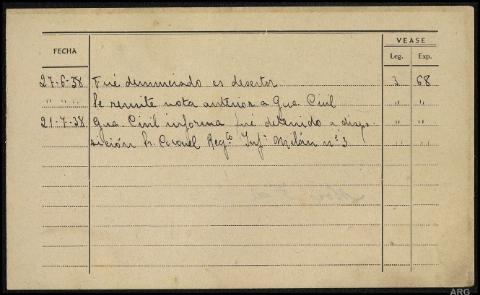 VEASE
FECHA Leg. Exp.
27-6-38 Fué denunciado es desertor 3 68
" " " Se remite nota anterior a Gua Civil " "
21-7-38 Gua Civil informa fué detenido a dispo-
sición Sr. Coronel Regto Infª Milán nº 3.
ARG